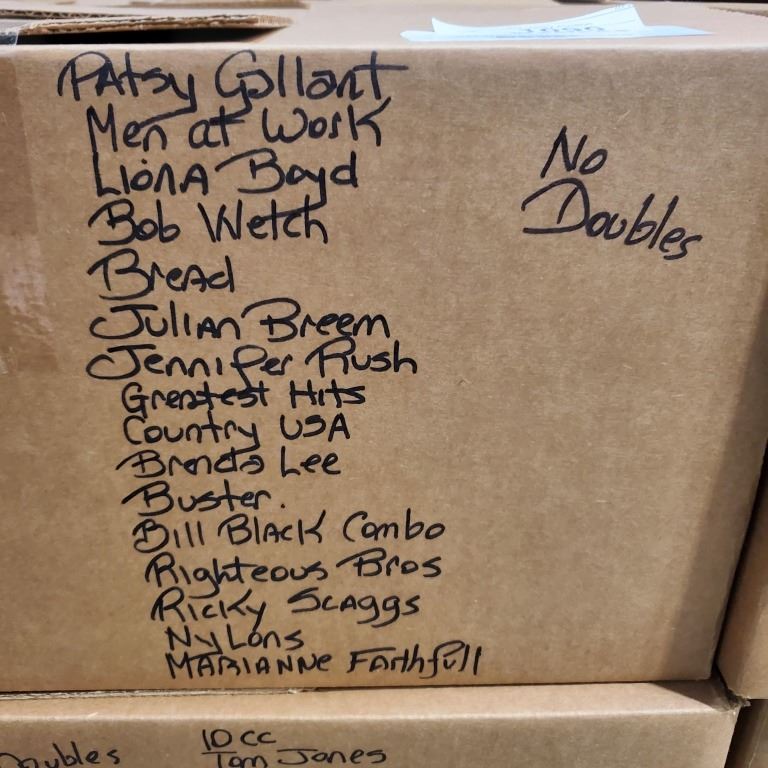 Patsy Gallant
Men at Work
Liona Boyd
Bob Welch
Bread
Julian Breem
Jennifer Rush
Greatest Hits
Country USA
Brenda Lee
Buster.
Bill Black Combo
Righteous Bros
Ricky Scaggs
Nylons
Marianne Faithfull
No
Doubles
Doubles
10cc
Tom Jones